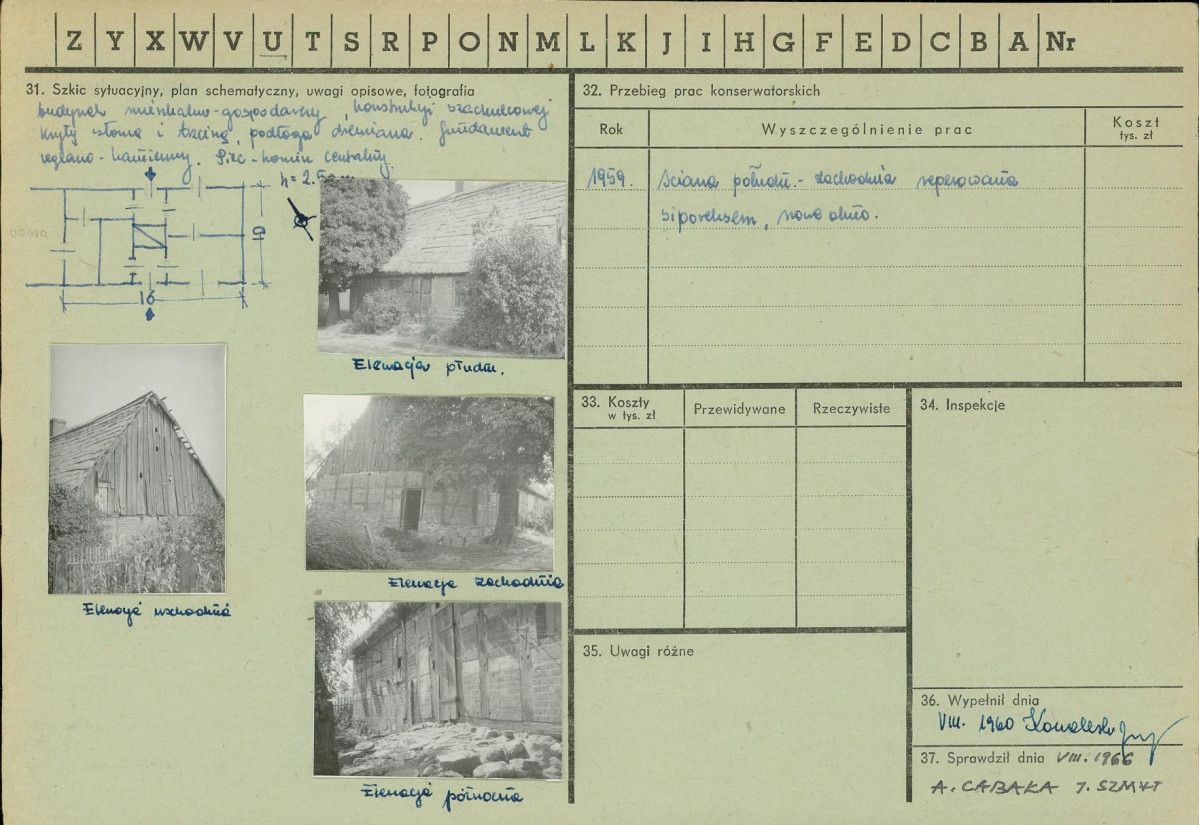 Z Y X W V U T S R P O N M L K J I H G F E D C B A Nr
31. Szkic sytuacyjny, plan schematyczny, uwagi opisowe, fotografia
budynek mieszkalno-gospodarczy, konstrukcji szachulcowej
kryty słomą i trzciną, podłoga drewniana. fundament
ceglano-kamienny. Piec-komin centralny.
h=2.
obora
10
16
Elewacja połudn.
Elewacja wschodnia
Elewacja zachodnia
Elewacja północna
32. Przebieg prac konserwatorskich
Rok
Wyszczególnienie prac
Koszt
tys. zł
1959. Sciana połudn.-zachodnia reperowana
siporeksem, nowe okno.
33. Koszty
w tys. zł
Przewidywane
Rzeczywiste
34. Inspekcje
35. Uwagi różne
36. Wypełnił dnia
VIII. 1960
37. Sprawdził dnia VIII. 1966
A. CABAŁA J. SZMYT